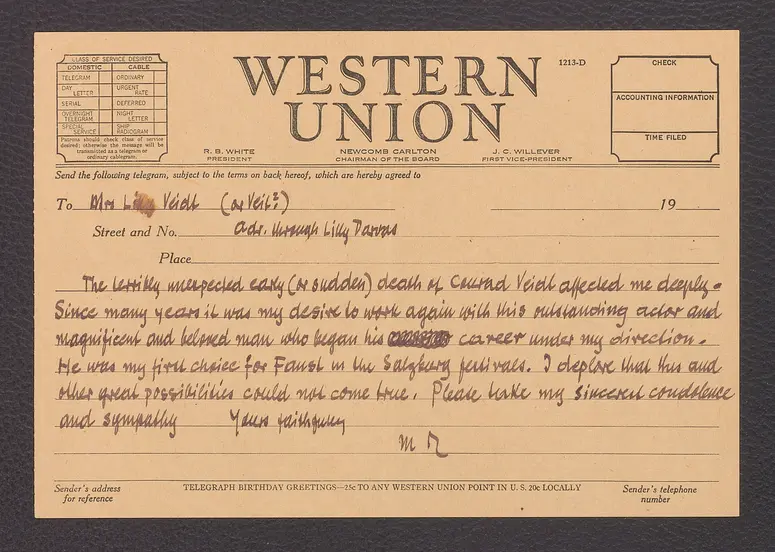 CLASS OF SERVICE DESIRED
DOMESTIC CABLE
TELEGRAM ORDINARY
DAY LETTER URGENT RATE
SERIAL DEFERRED
OVERNIGHT TELEGRAM NIGHT LETTER
SPECIAL SERVICE SHIP RADIOGRAM
Patrons should check class of service
desired; otherwise the message will be
transmitted as a telegram or
ordinary cablegram.
WESTERN
UNION
1213-D
CHECK
ACCOUNTING INFORMATION
TIME FILED
R. B. WHITE NEWCOMB CARLTON J. C. WILLEVER
PRESIDENT CHAIRMAN OF THE BOARD FIRST VICE-PRESIDENT
Send the following telegram, subject to the terms on back hereof, which are hereby agreed to
To Mrs Lilly Veidt (or Veit?) 19
Street and No. Adr. through Lilly Darvas
Place
The terribly unexpected early (or sudden) death of Conrad Veidt affected me deeply.
Since many years it was my desire to work again with this outstanding actor and
magnificent and beloved man who began his career under my direction.
He was my first choice for Faust in the Salzburg festivals. I deplore that this and
other great possibilities could not come true. Please take my sincerest condolence
and sympathy Yours faithfully
M R
Sender's address
for reference
TELEGRAPH BIRTHDAY GREETINGS—25c TO ANY WESTERN UNION POINT IN U. S. 20c LOCALLY
Sender's telephone
number